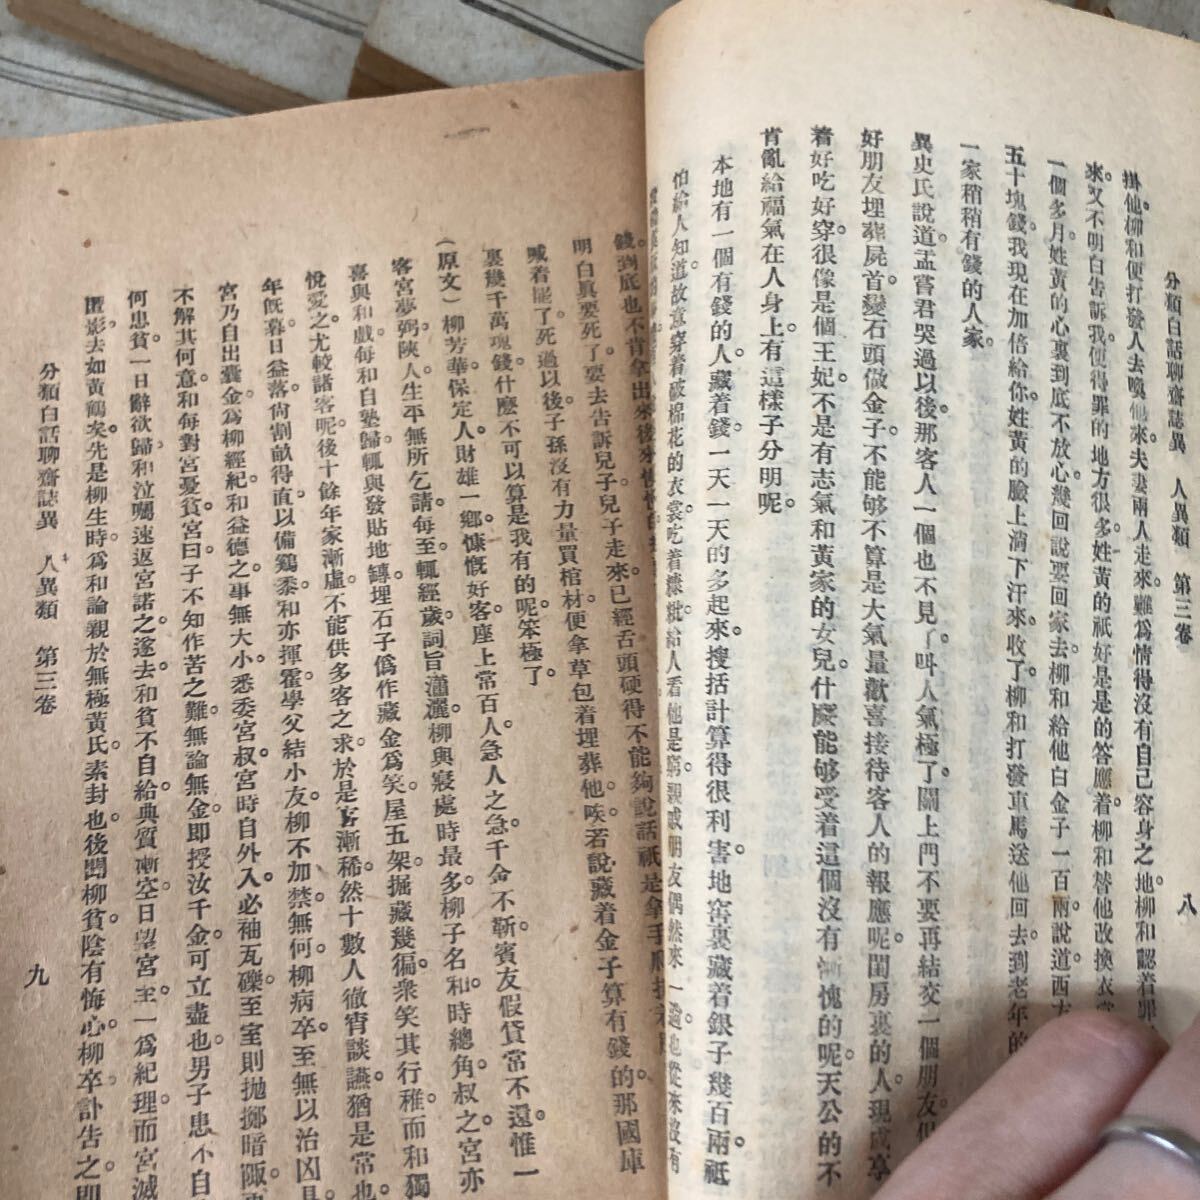 分類白話聊齋誌異　人異類　第三卷　八
掛。他。柳和便打發人去喚他來。夫妻兩人走來。難爲情得沒有自己容身之地。柳和認着罪
來。又不明白告訴我。便得罪的地方很多。姓黃的祇好是是的答應着。柳和替他改換衣
一個多月。姓黃的心裏到底不放心。幾回說要回家去。柳和給他白金子一百兩。說道西方
五十塊錢。我現在加倍給你。姓黃的臉上淌下汗來。收了。柳和打發車馬送他回去。到老年的
一家稍稍有錢的人家。
異史氏說道。孟嘗君哭過以後。那客人一個也不見了。叫人氣極了。關上門不要再結交一個朋友。但
好朋友埋葬屍首。變石頭做金子。不能够不算是大氣量歡喜接待客人的報應呢。閨房裏的人。現成享
着好吃好穿。很像是個王妃。不是有志氣和黃家的女兒。什麼能够受着這個沒有慚愧的呢。天公的不
肯亂給福氣在人身上。有這樣子分明呢。
本地有一個有錢的人。藏着錢一天一天的多起來。搜括計算得很利害。地窖裏藏着銀子幾百兩。祇
怕給人知道。故意穿着破棉花的衣裳。吃着糠粃給人看。他是窮。親戚朋友偶然來一過。也從來沒有
錢。到底也不肯拿出來。後來
明白眞要死了。要去告訴兒子。兒子走來。已經舌頭硬得不能夠說話。祇是拿手
喊着罷了。死過以後。子孫沒有力量買棺材。便拿草包着埋葬他。唉。若說藏着金子算有錢的。那國庫
裏幾千萬塊錢。什麼不可以算是我有的呢。笨極了。
(原文)柳芳華。保定人。財雄一鄉。慷慨好客。座上常百人。急人之急。千金不靳。賓友假貸常不還。惟一
客宮夢弼。陝人。生平無所乞請。每至輒經歲。詞旨瀟灑。柳與寢處時最多。柳子名和。時總角。叔之。宮亦
喜與和戲。每和自塾歸。輒與發貼地磚。埋石子僞作藏金爲笑。屋五架。掘藏幾徧。衆笑其行稚。而和獨
悅愛之。尤較諸客昵。後十餘年。家漸虛。不能供多客之求。於是客漸稀。然十數人徹宵談讌。猶是常也。
年旣暮。日益落。尙割畝得直。以備鷄黍。和亦揮霍。學父結小友。柳不加禁。無何。柳病卒。至無以治凶具。
宮乃自出囊金。爲柳經紀。和益德之。事無大小。悉委宮叔。宮時自外入。必袖瓦礫。至室則拋擲暗陬。
不解其何意。和每對宮憂貧。宮曰。子不知作苦之難。無論無金。卽授汝千金。可立盡也。男子患不自
何患貧。一日辭欲歸。和泣囑速返。宮諾之。遂去。和貧不自給。典質漸空。日望宮至。一爲紀理。而宮滅
匿影。去如黃鶴矣。先是柳生時。爲和論親於無極黃氏。素封也。後聞柳貧。陰有悔心。柳卒。訃告之。卽
分類白話聊齋誌異　人異類　第三卷　九